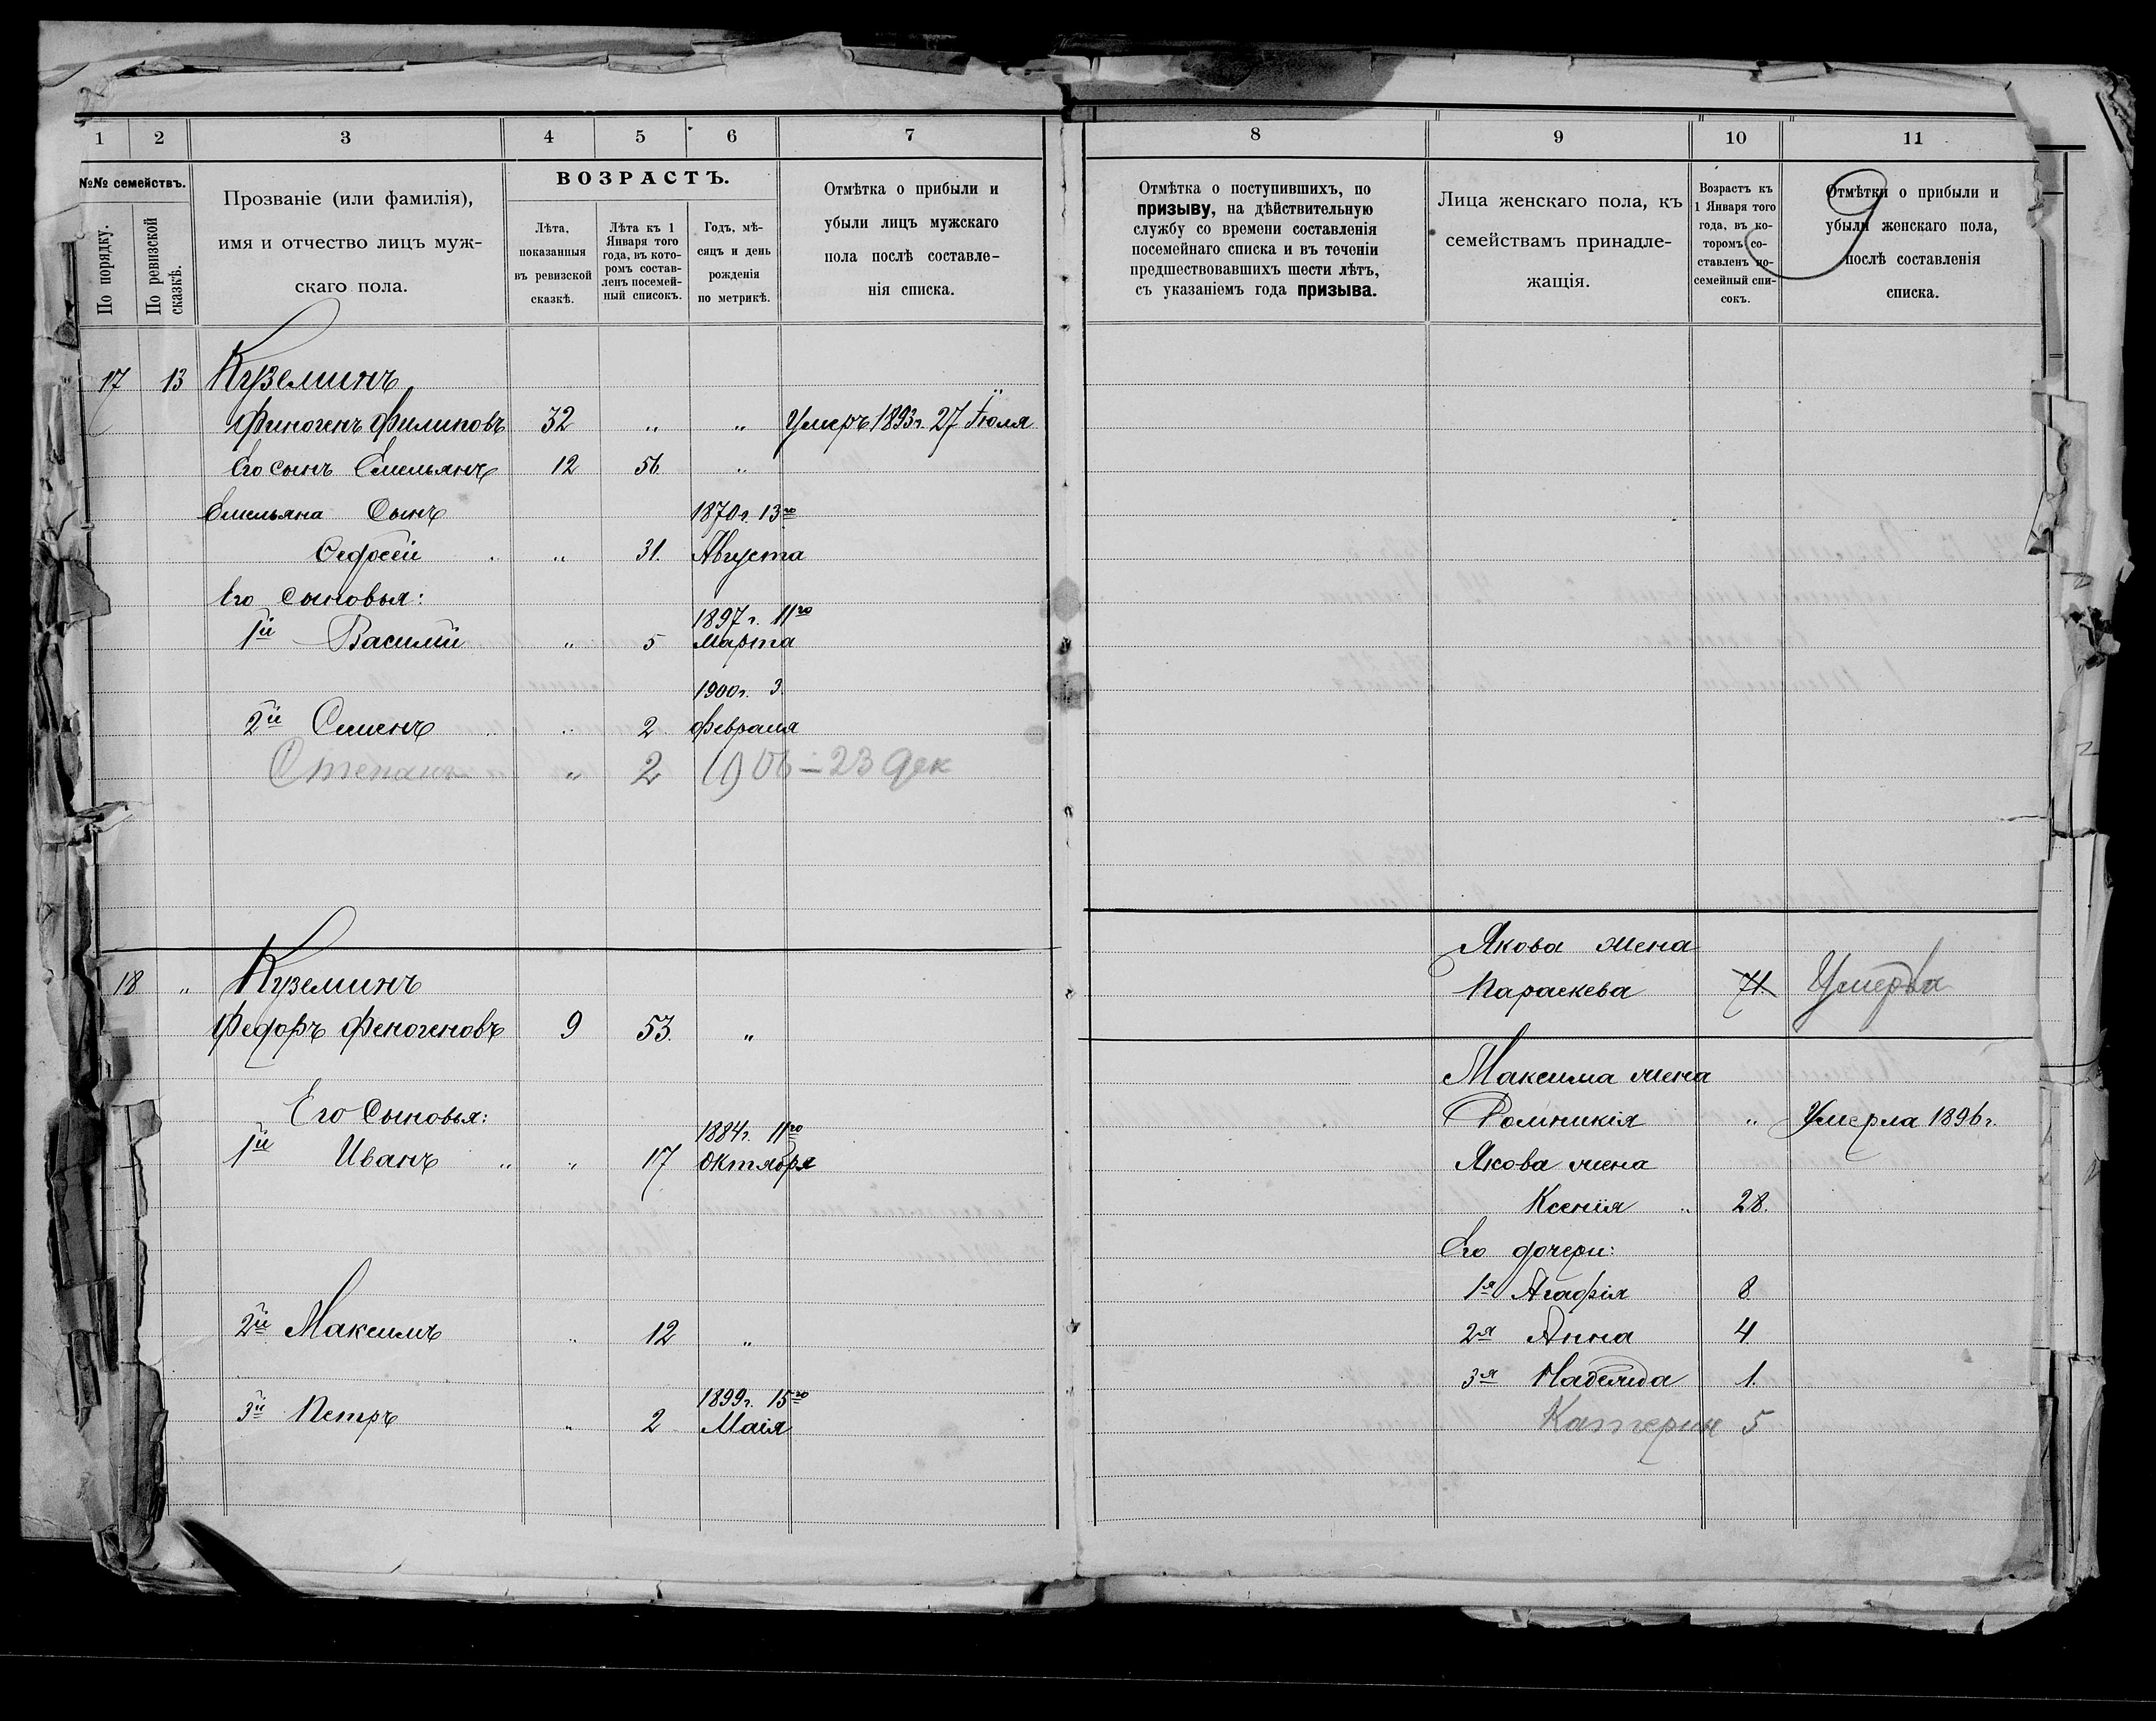 1 2 3 4 5 6 7
№№ семействъ.
По порядку.
По ревизской сказкѣ.
Прозваніе (или фамилія),
имя и отчество лицъ муж-
скаго пола.
ВОЗРАСТЪ.
Лѣта,
показанныя
въ ревизской
сказкѣ.
Лѣта къ 1
Января того
года, въ кото-
ромъ состав-
ленъ посемей-
ный списокъ.
Годъ, мѣ-
сяцъ и день
рожденія
по метрикѣ.
Отмѣтка о прибыли и
убыли лицъ мужскаго
пола послѣ составле-
нія списка.
17 13 Куземинъ
Финогенъ Филиповъ 32 „ „ Умеръ 1893г. 27 Іюля
Его сынъ Емельянъ 12 56 „
Емельяна Сынъ 1870г. 13го
„ 31. Августа
Его сыновья:
1897г. 11го
1й Василій „ 5 Марта
1900г. 3.
2й Семенъ „ 2 Февраля
Степанъ „ 2 1906 – 23 дек
18 „ Куземинъ
Федоръ Феногеновъ 9 53. „
Его Сыновья:
1884г. 11го
1й Иванъ „ „ 17 Октября
2й Максимъ „ 12 „
1899г. 15го
3й Петръ „ 2 Маія
8 9 10 11
Отмѣтка о поступившихъ, по
призыву, на дѣйствительную
службу со времени составленія
посемейнаго списка и въ теченіи
предшествовавшихъ шести лѣтъ,
съ указаніемъ года призыва.
Лица женскаго пола, къ
семействамъ принадле-
жащія.
Возрастъ къ
1 Января того
года, въ ко-
торомъ со-
ставленъ по-
семейный спи-
сокъ.
Отмѣтки о прибыли и
убыли женскаго пола,
послѣ составленія
списка.
9
Якова жена
Параскева 71. Умерла
Максима жена
Домникія „ Умерла 1896г.
Якова жена
Ксенія „ 28.
Его дочери:
1я Агафія 8
2я Анна 4
3я Надежда 1.
Катерин 5